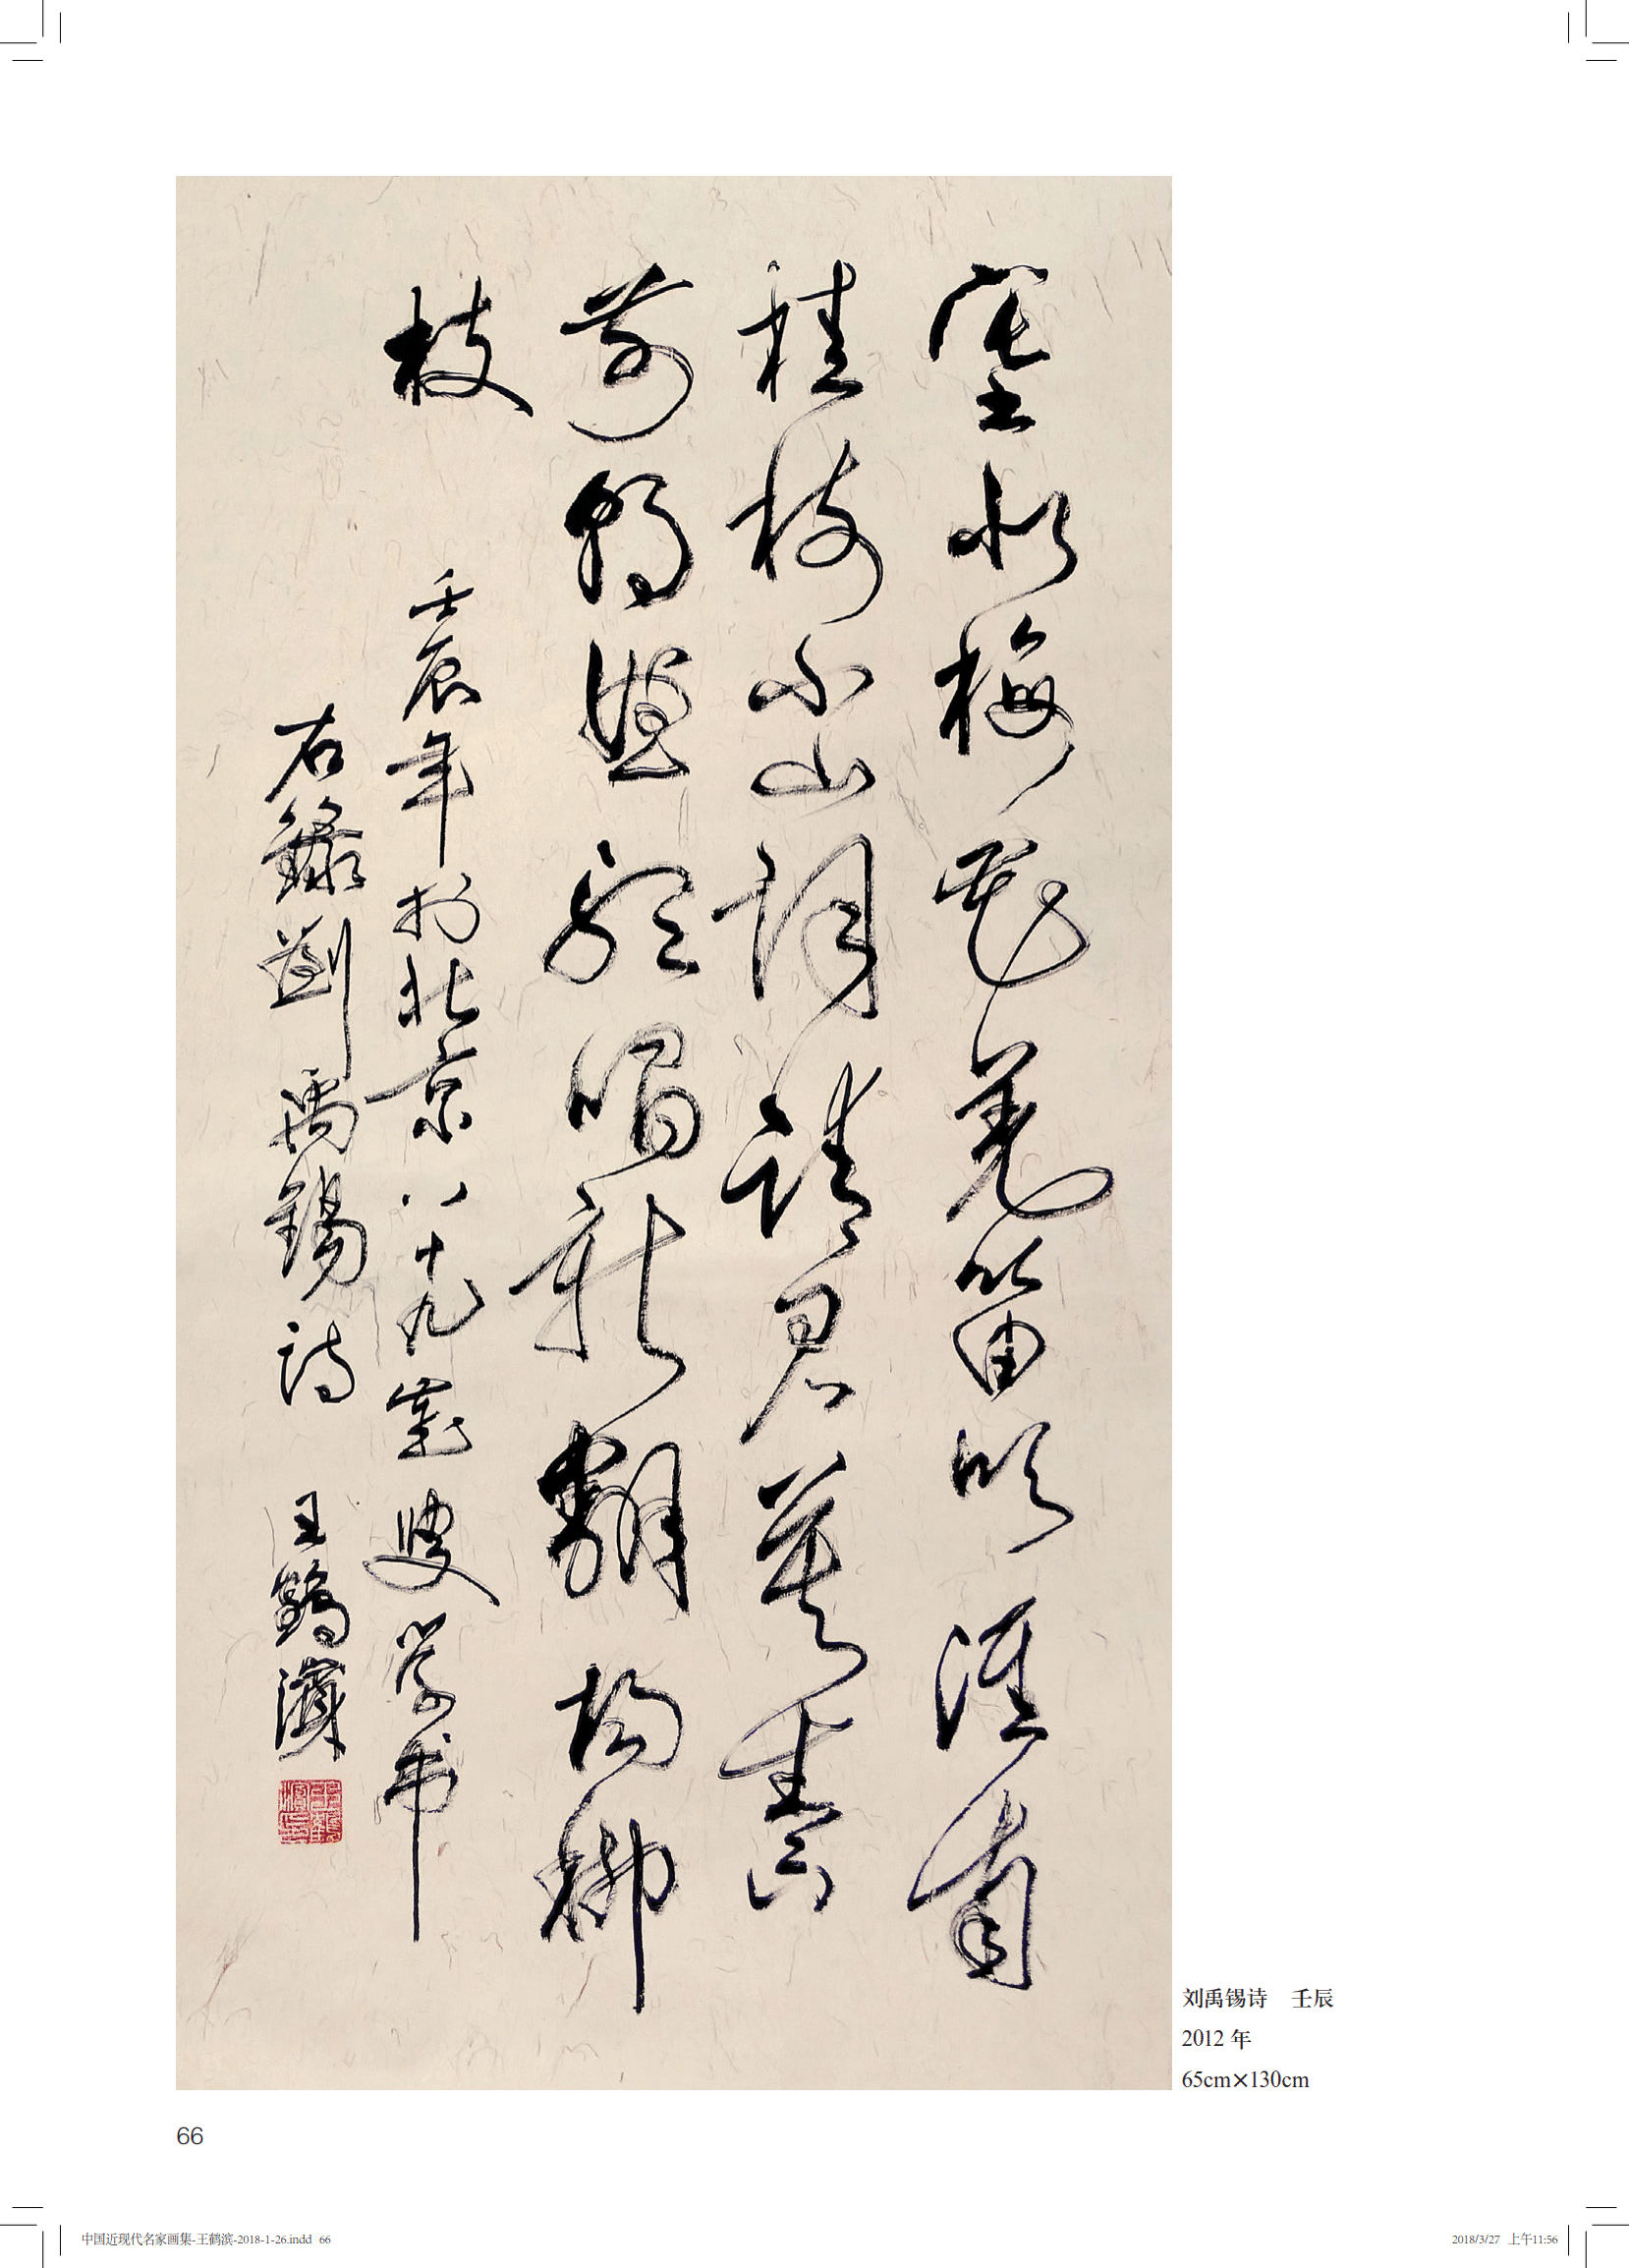 塞北梅花羌笛吹淮南
桂樹小山詞請君莫奏
前朝曲聽唱新翻楊柳
枝
壬辰年於北京八十九歲叟学书
右錄劉禹錫詩 王鶴濱
刘禹锡诗 壬辰
2012 年
65cm×130cm
66
中国近现代名家画集-王鹤滨-2018-1-26.indd 66
2018/3/27 上午11:56